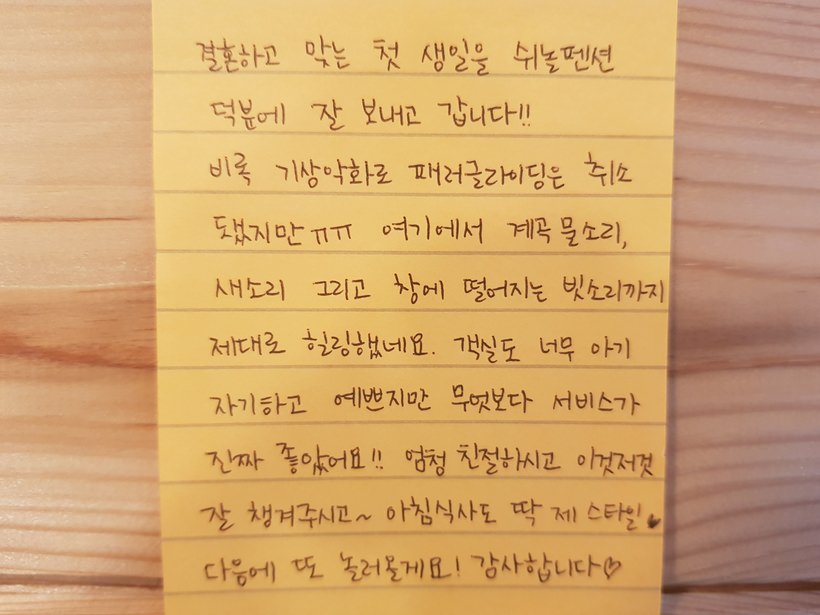 결혼하고 맞는 첫 생일을 쉬놀펜션
덕분에 잘 보내고 갑니다!!
비록 기상악화로 패러글라이딩은 취소
됐지만ㅠㅠ 여기에서 계곡 물소리,
새소리 그리고 창에 떨어지는 빗소리까지
제대로 힐링했네요. 객실도 너무 아기
자기하고 예쁘지만 무엇보다 서비스가
진짜 좋았어요!! 엄청 친절하시고 이것저것
잘 챙겨주시고~ 아침식사도 딱 제 스타일♥
다음에 또 놀러올게요! 감사합니다♡